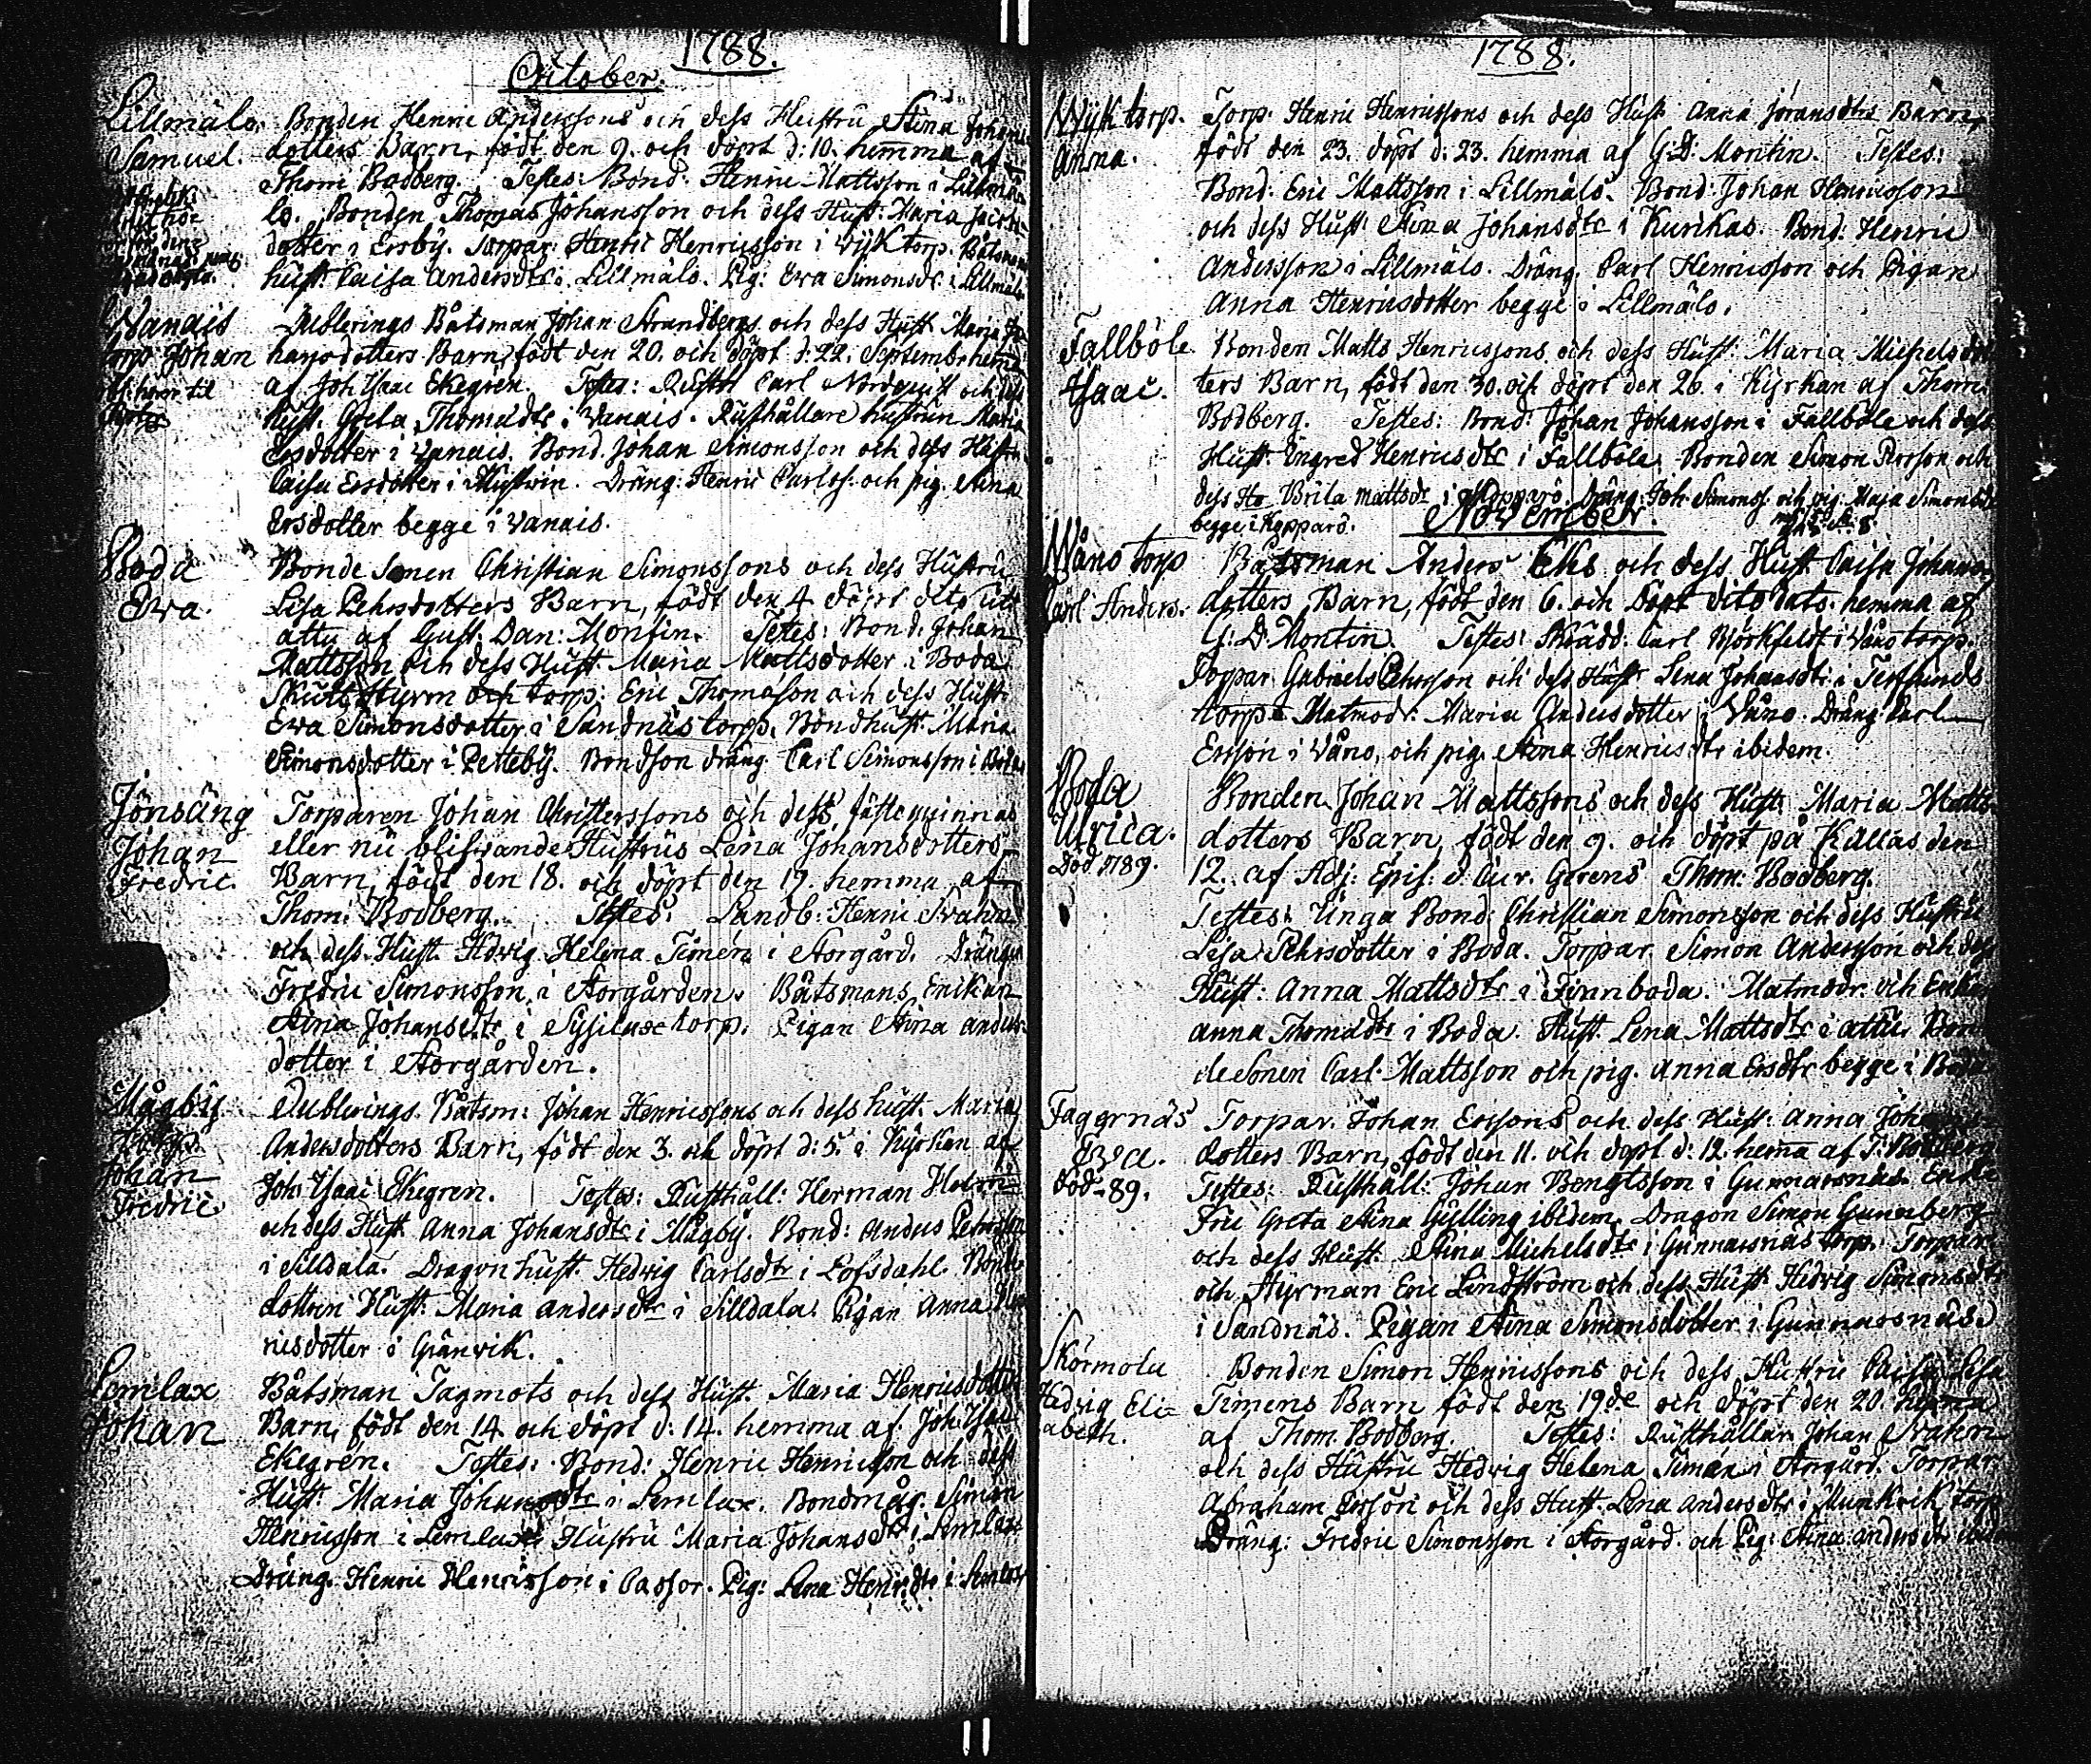 1788.
October.
Lillmälo. Bonden Henric Anderssons och dess Hustru Stina Johans
Samuel. dotters Barn, födt den 9. och döpt d: 10. hemma af
Thom Bodberg. Testes: Bond. Henric Mattsson i Lillmä
lo. Bonden Thomas Johansson och dess Hust: Maria Jacobs
dotter i Ersby. Torpar: Henric Henricsson i Wyk torp. Båtsmans
hust. Caisa Andersdtr i Lillmälo. Pig: Ewa Simonsdr i Lillmälo
Wanais Dublerings Båtsman Johan Strandbergs och dess Hust Maria Jo
torp Johan hansdotters Barn, födt den 20. och döpt d: 22. Septembr hemma
hörer til af Joh Isaac Ekegrén. Testes: Rusth Carl Nordquist och dess
hust. Greta Thomædtr i Wanais. Rusthållare hustrun Maria
Ersdotter i Wanais. Bond. Johan Simonsson och dess Hustru
Caisa Ersdotter i. Dräng: Henric Carlss. och pig. Stina
Ersdotter begge i Wanais.
Boda Bonde Sonen Christian Simonssons och dess Hustru
Ewa. Lisa Pehrsdotters Barn, födt den 4 döpt dito uti
attu af Gust: Dan: Montin. Testes: Bond: Johan
Mattsson och dess Hust. Maria Mattsdotter i Boda
Skutt Styrm och torp: Eric Thomasson och dess Hust:
Ewa Simonsdotter i Sandnäs torp. Bondhust: Maria
Simonsdotter i Petteby. Bondson dräng Carl Simonsson i Boda
Jönsäng Torparen Johan Christerssons och dess fästequinnas
Johan eller nu blifwande Hustrus Lena Johansdotters
Fredric. Barn, födt den 18. och döpt den 19. hemma af
Thom: Bodberg. Testes: Landb: Henric Svahn
och dess Hust. Hedvig Helena Timén i Storgård. Drängen
Fredric Simonsson i Storgården. Båtsmans Enkan
Stina Johansdtr i Sysilax torp. Pigan Stina anders
dotter i Storgården.
Mågby Dublerings Båtsm: Johan Henricssons och dess hust. Maria
torp Andersdotters Barn, födt den 3. och döpt d: 5. i Kyrkan af
Johan Joh: Isaac Ekegren. Testes: Rusthåll: Herman Holm
Fredric och dess Hust Anna Johansdtr i Mågby. Bond: Anders Pehrsson
i Silldala. Dragon hust. Hedvig Carlsdtr i Lofsdahl. Bonde
dottren Hust: Maria andersdtr i Silldala. Pigan Anna Hen
ricsdotter i Gränvik.
Lemlax Båtsman Tagmots och dess Hust. Maria Henricsdotters
Johan Barn, födt den 14 och döpt d: 14. hemma af Joh: Isac
Ekegrén. Testes: Bond: Henric Henricsson och dess
Hust: Maria Johansdtr i Lemlax. Bondmåg. Simon
Henricsson i Lemlax. Hustru Maria Johansdtr i Lemlax
Dräng. Henric Henricsson i Cassor. Pig: Lena Henr:dtr i Lemlax
1788.
Wyk torp. Torp: Henric Henricssons och dess Hust Anna Joransdtrs Barn,
Anna. födt den 23. döpt d: 23. hemma af G: D. Montin. Testes:
Bond: Eric Mattsson i Lillmälo. Bond: Johan Henricsson
och dess Hust. Stina Johansdtr i Kurikas. Bond: Henric
Andersson i Lillmälo. Dräng. Carl Henricsson och Pigan
Anna Henricsdotter begge i Lillmälo.
Fallböle Bonden Matts Henricssons och dess Hust: Maria Michelsdot
Isaac. ters Barn, födt den 30. och döpt den 26. i Kyrkan af Thom.
Bodberg. Testes: Bond: Johan Johansson i Fallböle och dess
Hust. Ingred Henricsdtr i Fallböle. Bonden Simon Persson och
dess Hu Brita Mattsdr i Kopparö. Dräng: Joh: Simonss: och pig: Maja Simonsdr
begge i Kopparö.
November.
Wåno torp Båtsman Anders Eks och dess Hust Caisa Johans
Carl Anders. dotters Barn, födt den 6. och Döpt dito dato. hemma af
G: D. Montin Testes: Skrädd: Carl Björkfeldt i Våno torp.
Torpar Gabriels Pehrsson och dess Hust Lena Johansdtr i Terslunds
torp. Matmodr. Maria Andersdotter i Våno. Dräng Carl
Ersson i Våno, och pig. Stina Henricsdtr ibidem.
Boda Bonden Johan Mattssons och dess Hust. Maria Matts
Ulrica. dotters Barn, födt den 9. och döpt på Kullas den
Död 1789. 12. af Adj: Epis: & Cur. Gerens Thom: Bodberg.
Testes: Unga Bond: Christian Simonsson och dess Hustru
Lisa Pehrsdotter i Boda. Torpar Simon Andersson och dess
Hust: Anna Mattsdtr i Finnboda. Matmodr och Enkan
Anna Thomædtr i Boda. Hust. Lena Mattsdtr i attu. Bon
de Sonen Carl Mattsson och pig. Anna Ersdtr begge i Boda
Faggernäs Torpar. Johan Ericssons och dess Hust: Anna Johans
Eva. dotters Barn, födt den 11. och döpt d: 12. hema af T: Bodberg
död -89. Testes: Rusthåll: Johan Bengtsson i Gunnarsnäs. Enke
Fru Greta Stina Gylling ibidem. Dragon Simon Gunnberg
och dess Hust: Stina Michelsdtr i Gunnarsnäs torp. Torpar
och Styrman Eric Lindström och dess Hust. Hedvig Simonsdtr
i Sandnäs. Pigan Stina Simonsdotter i Gunnarsnäs.
Skörmola Bonden Simon Henricssons och dess Hustru Caisa Lisa
Hedvig Eli= Timens Barn födt den 19de och döpt den 20. hemma
abeth. af Thom. Bodberg. Testes: Rusthållar Johan Svahn
och dess Hustru Hedvig Helena Timén i Storgård. Torpar
Abraham Ersson och dess Hust. Lena andersdtr i Munkvik torp
Dräng: Fredric Simonsson i Storgård och Pig: Stina andersdtr ibidem